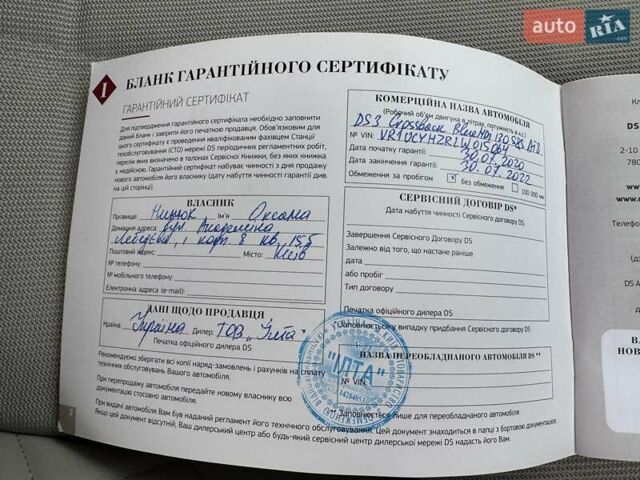 auto RIA
I БЛАНК ГАРАНТІЙНОГО СЕРТИФІКАТУ
ГАРАНТІЙНИЙ СЕРТИФІКАТ
Для підтвердження гарантійного сертифіката необхідно заповнити
даний бланк і завірити його печаткою продавця. Обов'язковим для
цього сертифікату є проведення кваліфікованим фахівцем Станції
техобслуговування (СТО) мережі DS періодичних регламентних робіт,
перелік яких визначено в талонах Сервісної Книжки, без яких книжка
є недійсною. Гарантійний сертифікат набуває чинності з дня продажу
нового автомобіля його власнику (дата набуття чинності гарантії див.
на цій сторінці).
ВЛАСНИК
Прізвище: Ницюк Ім'я Оксана
Домашня адреса вул. Академіка
Лебедєва, 1 корп. 8 кв. 155
Поштовий індекс: Місто: Київ
№ телефону:
№ мобільного телефону:
Електронна адреса (e-mail):
ДАНІ ЩОДО ПРОДАВЦЯ
Країна Україна Дилер: ТОВ "Ілта"
Печатка офіційного дилера DS
Рекомендуємо зберігати всі копії наряд-замовлень і рахунків на сплату
технічних обслуговувань Вашого автомобіля.
При перепродажу автомобіля передайте новому власнику всю
документацію стосовно автомобіля.
При видачі автомобіля Вам був наданий регламент його технічного обслуговування. Цей документ знаходиться в папці з бортовою документацією.
Якщо цей документ відсутній, Ваш дилерський центр або будь-який сервісний центр дилерської мережі DS надасть його Вам.
2
КОМЕРЦІЙНА НАЗВА АВТОМОБІЛЯ
(Робочий об'єм двигуна в літрах, потужність в к.с.)
DS3 Crossback BlueHDi 130 S&S
№ VIN: VR1UCYHZRLW015064
Дата початку гарантії: 30.07.2020
Дата закінчення гарантії: 30.07.2022
Обмеження за пробігом: без обмеження 100 000 км
СЕРВІСНИЙ ДОГОВІР DS*
Дата набуття чинності Сервісного Договору DS
Завершення Сервісного Договору DS
Залежно від того, що настане раніше
дата
або пробіг
Тип договору
№ контракту
Печатка офіційного дилера DS
Заповнюється у випадку придбання Сервісного договору DS
НАЗВА ПЕРЕОБЛАДНАНОГО АВТОМОБІЛЯ DS**
№ VIN:
Заповнюється лише для переобладнаного автомобіля
"ІЛТА"
УКРАЇНА
DS
2-10
www.